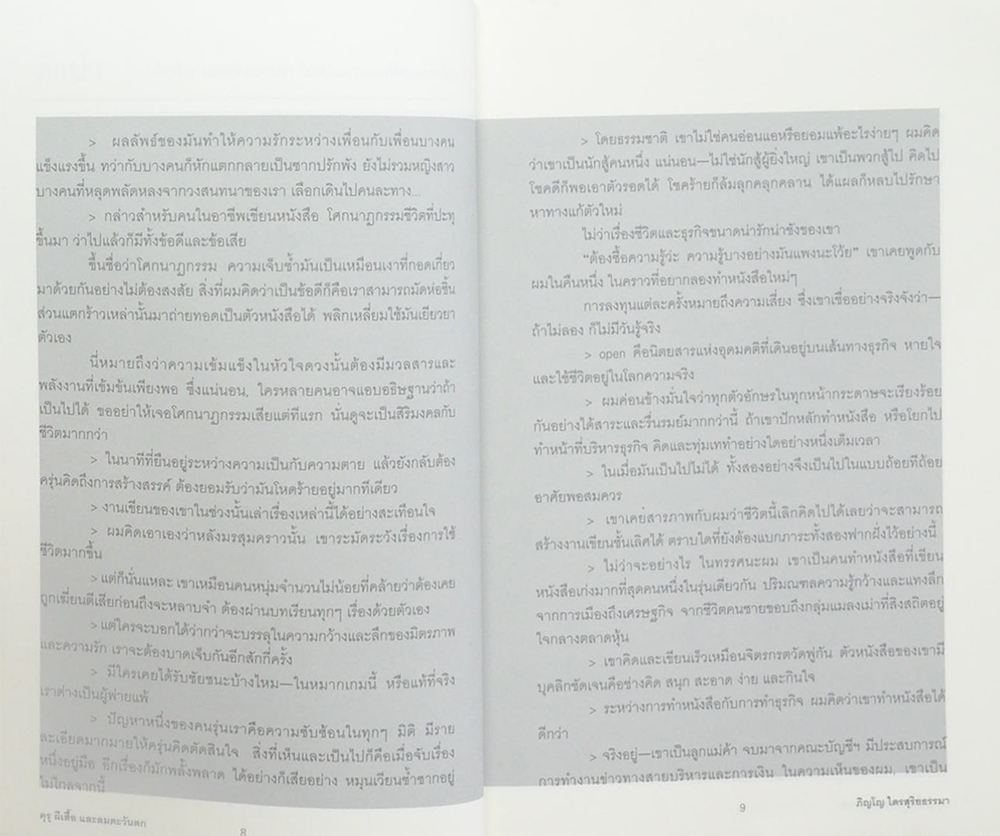 > ผลลัพธ์ของมันทำให้ความรักระหว่างเพื่อนกับเพื่อนบางคน
แข็งแรงขึ้น ทว่ากับบางคนก็หักแตกกลายเป็นซากปรักพัง ยังไม่รวมหญิงสาว
บางคนที่หลุดพลัดหลงจากวงสนทนาของเรา เลือกเดินไปคนละทาง...
> กล่าวสำหรับคนในอาชีพเขียนหนังสือ โศกนาฏกรรมชีวิตที่ปะทุ
ขึ้นมา ว่าไปแล้วก็มีทั้งข้อดีและข้อเสีย
ขึ้นชื่อว่าโศกนาฏกรรม ความเจ็บช้ำมันเป็นเหมือนเงาที่กอดเกี่ยว
มาด้วยกันอย่างไม่ต้องสงสัย สิ่งที่ผมคิดว่าเป็นข้อดีก็คือเราสามารถมัดห่อชิ้น
ส่วนแตกร้าวเหล่านั้นมาถ่ายทอดเป็นตัวหนังสือได้ พลิกเหลี่ยมใช้มันเยียวยา
ตัวเอง
นี่หมายถึงว่าความเข้มแข็งในหัวใจดวงนั้นต้องมีมวลสารและ
พลังงานที่เข้มข้นเพียงพอ ซึ่งแน่นอน, ใครหลายคนอาจแอบอธิษฐานว่าถ้า
เป็นไปได้ ขออย่าให้เจอโศกนาฏกรรมเสียแต่ทีแรก นั่นดูจะเป็นสิริมงคลกับ
ชีวิตมากกว่า
> ในนาทีที่ยืนอยู่ระหว่างความเป็นกับความตาย แล้วยังกลับต้อง
ครุ่นคิดถึงการสร้างสรรค์ ต้องยอมรับว่ามันโหดร้ายอยู่มากทีเดียว
> งานเขียนของเขาในช่วงนั้นเล่าเรื่องเหล่านี้ได้อย่างสะเทือนใจ
> ผมคิดเอาเองว่าหลังมรสุมคราวนั้น เขาระมัดระวังเรื่องการใช้
ชีวิตมากขึ้น
> แต่ก็นั่นแหละ เขาเหมือนคนหนุ่มจำนวนไม่น้อยที่คล้ายว่าต้องเคย
ถูกเฆี่ยนตีเสียก่อนถึงจะหลาบจำ ต้องผ่านบทเรียนทุกๆ เรื่องด้วยตัวเอง
> แต่ใครจะบอกได้ว่ากว่าจะบรรลุในความกว้างและลึกของมิตรภาพ
และความรัก เราจะต้องบาดเจ็บกันอีกสักกี่ครั้ง
> มีใครเคยได้รับชัยชนะบ้างไหม—ในหมากเกมนี้ หรือแท้ที่จริง
เราต่างเป็นผู้พ่ายแพ้
> ปัญหาหนึ่งของคนรุ่นเราคือความซับซ้อนในทุกๆ มิติ มีราย
ละเอียดมากมายให้ครุ่นคิดตัดสินใจ สิ่งที่เห็นและเป็นไปก็คือเมื่อจับเรื่อง
หนึ่งอยู่มือ อีกเรื่องก็มักพลั้งพลาด ได้อย่างก็เสียอย่าง หมุนเวียนซ้ำซากอยู่
ไม่ไกลจากนี้
คุรุ ผีเสื้อ และลมตะวันตก
8
> โดยธรรมชาติ เขาไม่ใช่คนอ่อนแอหรือยอมแพ้อะไรง่ายๆ ผมคิด
ว่าเขาเป็นนักสู้คนหนึ่ง แน่นอน—ไม่ใช่นักสู้ผู้ยิ่งใหญ่ เขาเป็นพวกสู้ไป คิดไป
โชคดีก็พอเอาตัวรอดได้ โชคร้ายก็ล้มลุกคลุกคลาน ได้แผลก็หลบไปรักษา
หาทางแก้ตัวใหม่
ไม่ว่าเรื่องชีวิตและธุรกิจขนาดน่ารักน่าชังของเขา
“ต้องซื้อความรู้ว่ะ ความรู้บางอย่างมันแพงนะโว้ย” เขาเคยพูดกับ
ผมในคืนหนึ่ง ในคราวที่อยากลองทำหนังสือใหม่ๆ
การลงทุนแต่ละครั้งหมายถึงความเสี่ยง ซึ่งเขาเชื่ออย่างจริงจังว่า—
ถ้าไม่ลอง ก็ไม่มีวันรู้จริง
> open คือนิตยสารแห่งอุดมคติที่เดินอยู่บนเส้นทางธุรกิจ หายใจ
และใช้ชีวิตอยู่ในโลกความจริง
> ผมค่อนข้างมั่นใจว่าทุกตัวอักษรในทุกหน้ากระดาษจะเรียงร้อย
กันอย่างได้สาระและรื่นรมย์มากกว่านี้ ถ้าเขาปักหลักทำหนังสือ หรือโยกไป
ทำหน้าที่บริหารธุรกิจ คิดและทุ่มเททำอย่างใดอย่างหนึ่งเต็มเวลา
> ในเมื่อมันเป็นไปไม่ได้ ทั้งสองอย่างจึงเป็นไปในแบบถ้อยทีถ้อย
อาศัยพอสมควร
> เขาเคยสารภาพกับผมว่าชีวิตนี้เลิกคิดไปได้เลยว่าจะสามารถ
สร้างงานเขียนชั้นเลิศได้ ตราบใดที่ยังต้องแบกภาระทั้งสองฟากฝั่งไว้อย่างนี้
> ไม่ว่าจะอย่างไร ในทรรศนะผม เขาเป็นคนทำหนังสือที่เขียน
หนังสือเก่งมากที่สุดคนหนึ่งในรุ่นเดียวกัน ปริมณฑลความรู้กว้างและแทงลึก
จากการเมืองถึงเศรษฐกิจ จากชีวิตคนชายขอบถึงกลุ่มแมลงเม่าที่สิงสถิตอยู่
ใจกลางตลาดหุ้น
> เขาคิดและเขียนเร็วเหมือนจิตรกรตวัดพู่กัน ตัวหนังสือของเขามี
บุคลิกชัดเจนคือช่างคิด สนุก สะอาด ง่าย และกินใจ
> ระหว่างการทำหนังสือกับการทำธุรกิจ ผมคิดว่าเขาทำหนังสือได้
ดีกว่า
> จริงอยู่—เขาเป็นลูกแม่ค้า จบมาจากคณะบัญชีฯ มีประสบการณ์
การทำงานข่าวทางสายบริหารและการเงิน ในความเห็นของผม, เขาเป็น
9
ภิญโญ ไตรสุริยธรรมา